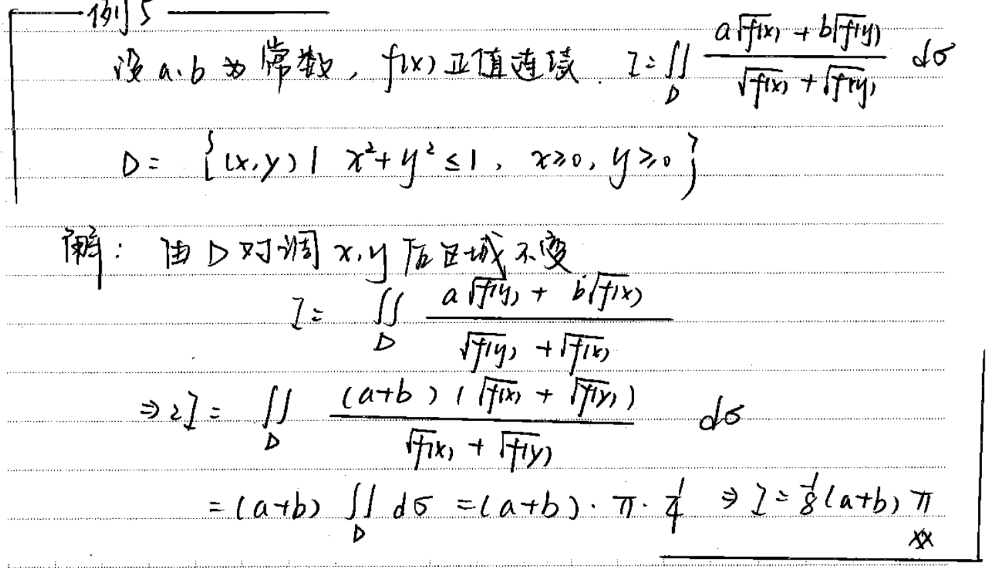 例5
设 a.b 为常数, f(x) 正值连续. I=∬_D (a√f(x) + b√f(y))/(√f(x) + √f(y)) dσ
D= {(x,y) | x²+y²≤1, x≥0, y≥0}
解: 由 D 对调 x,y 后区域不变
I= ∬_D (a√f(y) + b√f(x))/(√f(y) + √f(x))
⇒2I= ∬_D ((a+b)(√f(x) + √f(y)))/(√f(x) + √f(y)) dσ
=(a+b) ∬_D dσ =(a+b)·π·1/4 ⇒ I=1/8(a+b)π